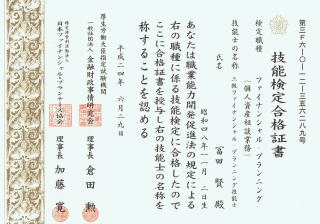 第三F六-〇-一二-三五六二八九号
技能検定合格証書
検定職種
ファイナンシャル・プランニング
(個人資産相談業務)
技能士の名称
二級ファイナンシャル・プランニング技能士
氏名
冨田 賢 殿
昭和四八年一一月二日生
あなたは職業能力開発促進法の規定による
右の職種に係る技能検定に合格したので
ここに合格証書を授与し右の技能士の名称を
称することを認める
平成二四年 六月二九日
厚生労働大臣指定試験機関
一般社団法人 金融財政事情研究会
理事長 倉田 勲
特定非営利活動法人
日本ファイナンシャル・プランナーズ協会
理事長 加藤 寛